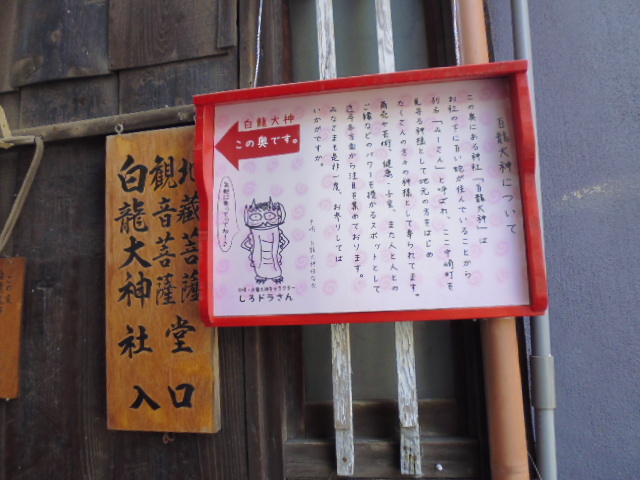 白龍大神について
この奥にある神社「白龍大神」は
お社の下に白い蛇が住んでいることから
別名「みーさん」と呼ばれ、ここ中崎町を
見守る神様として地元の方をはじめ
たくさんの方々の神様として奉られてます。
商売や芸術、健康・子宝、また人と人との
ご縁などのパワーを授かるスポットとして
近年各方面から注目を集めております。
みなさまも是非一度、お参りしては
いかがですか。
白龍大神
この奥です。
しろドラさん
地蔵菩薩
観音菩薩
堂
白龍大神社
入口